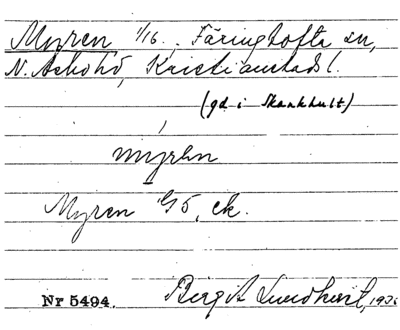 Myren 1/16, Färingtofta sn,
N. Åsbohd, Kristianstads l.
(gd i Skånkhult)
myren
Myren 1/5, ek.
Nr 5494. Birgit Lundkvist, 192